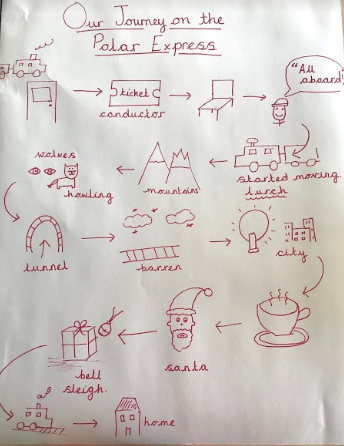 Our Journey on the
Polar Express
"All
aboard!"
ticket
conductor
started moving
lurch
mountains
wolves
howling
tunnel
barren
city
santa
bell
sleigh.
home